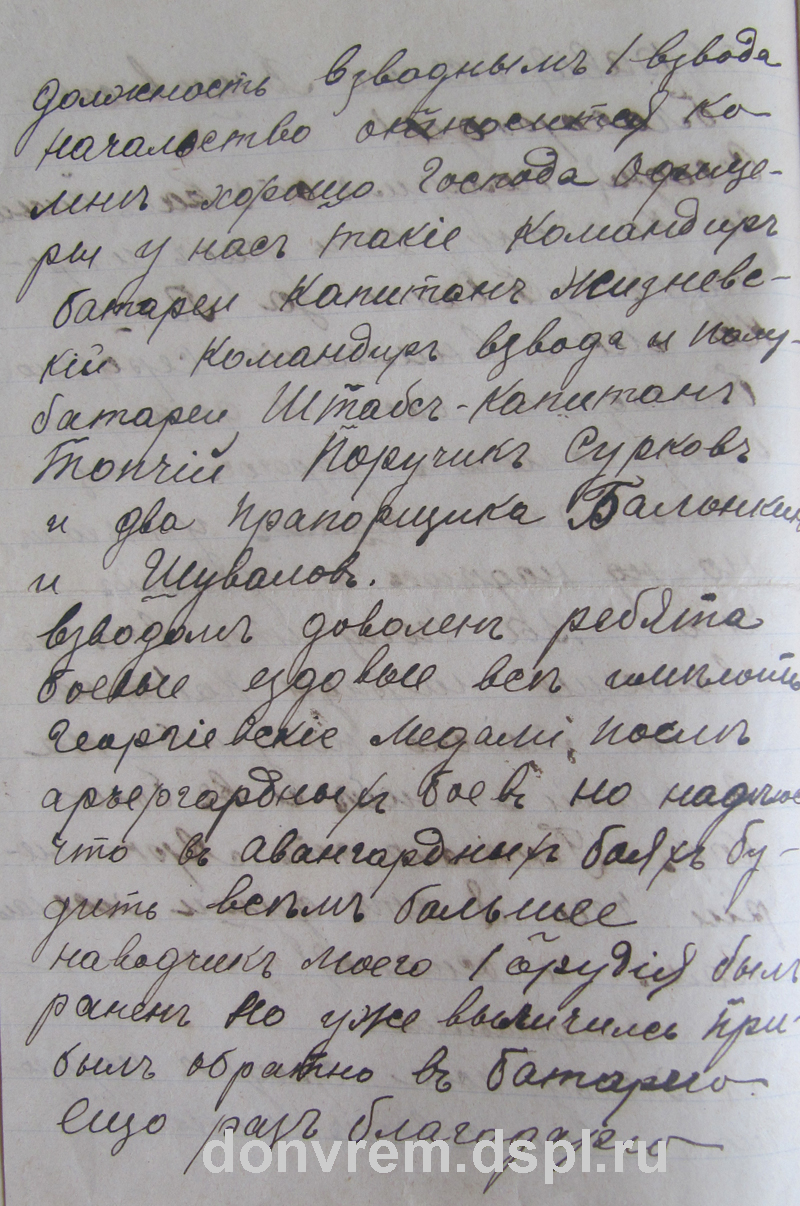 должность взводнымъ 1 взвода
началоство относится ко
мнѣ хорошо Господа Офице-
ры у насъ такіе Командиръ
батареи Капитанъ Жизневс-
кій Командиръ взвода и полу-
батареи Штабсъ-Капитанъ
Топчій Поручикъ Сурковъ
и два Прапорщика Балонкин
и Шувалов.
взводомъ доволенъ ребята
боевые ездовые всѣ имѣють
Георгіевскіе медали послѣ
арьергардных боевъ но надѣюс
что въ авангардных бояхъ бу-
дить всѣмъ большее
наводчикъ моего 1 орудія былъ
раненъ но уже выличилсь при-
былъ обратно въ батарею
Ещо разъ благодарю
donvrem.dspl.ru